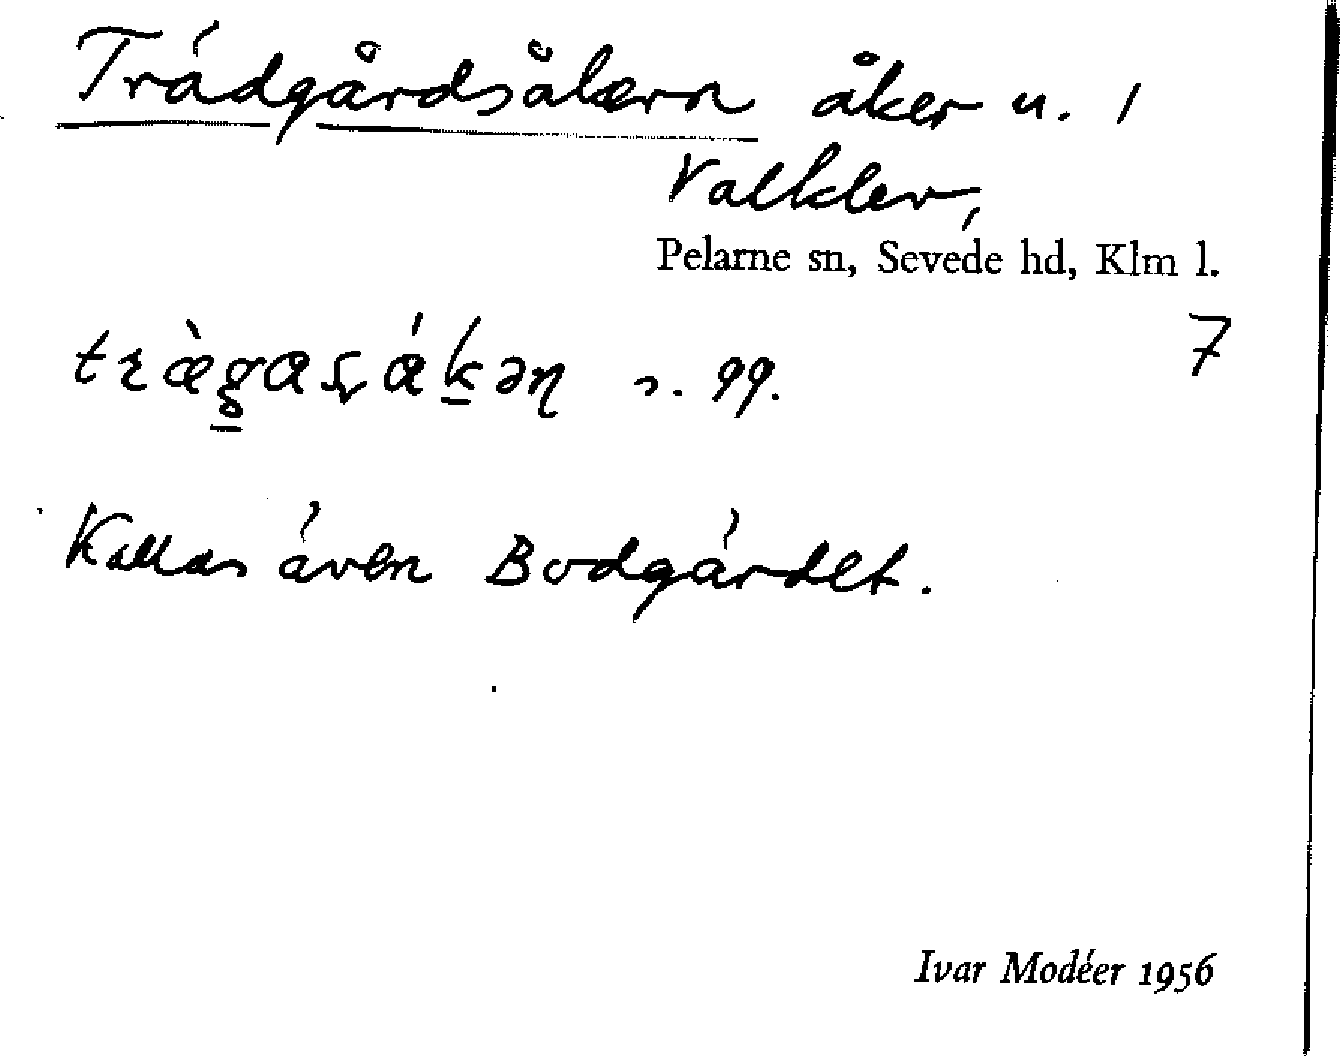 Trädgårdsåkern åker u. 1
Valklev,
Pelarne sn, Sevede hd, Klm l.
7
s. gg.
Kallas även Bodgärdet.
Ivar Modéer 1956